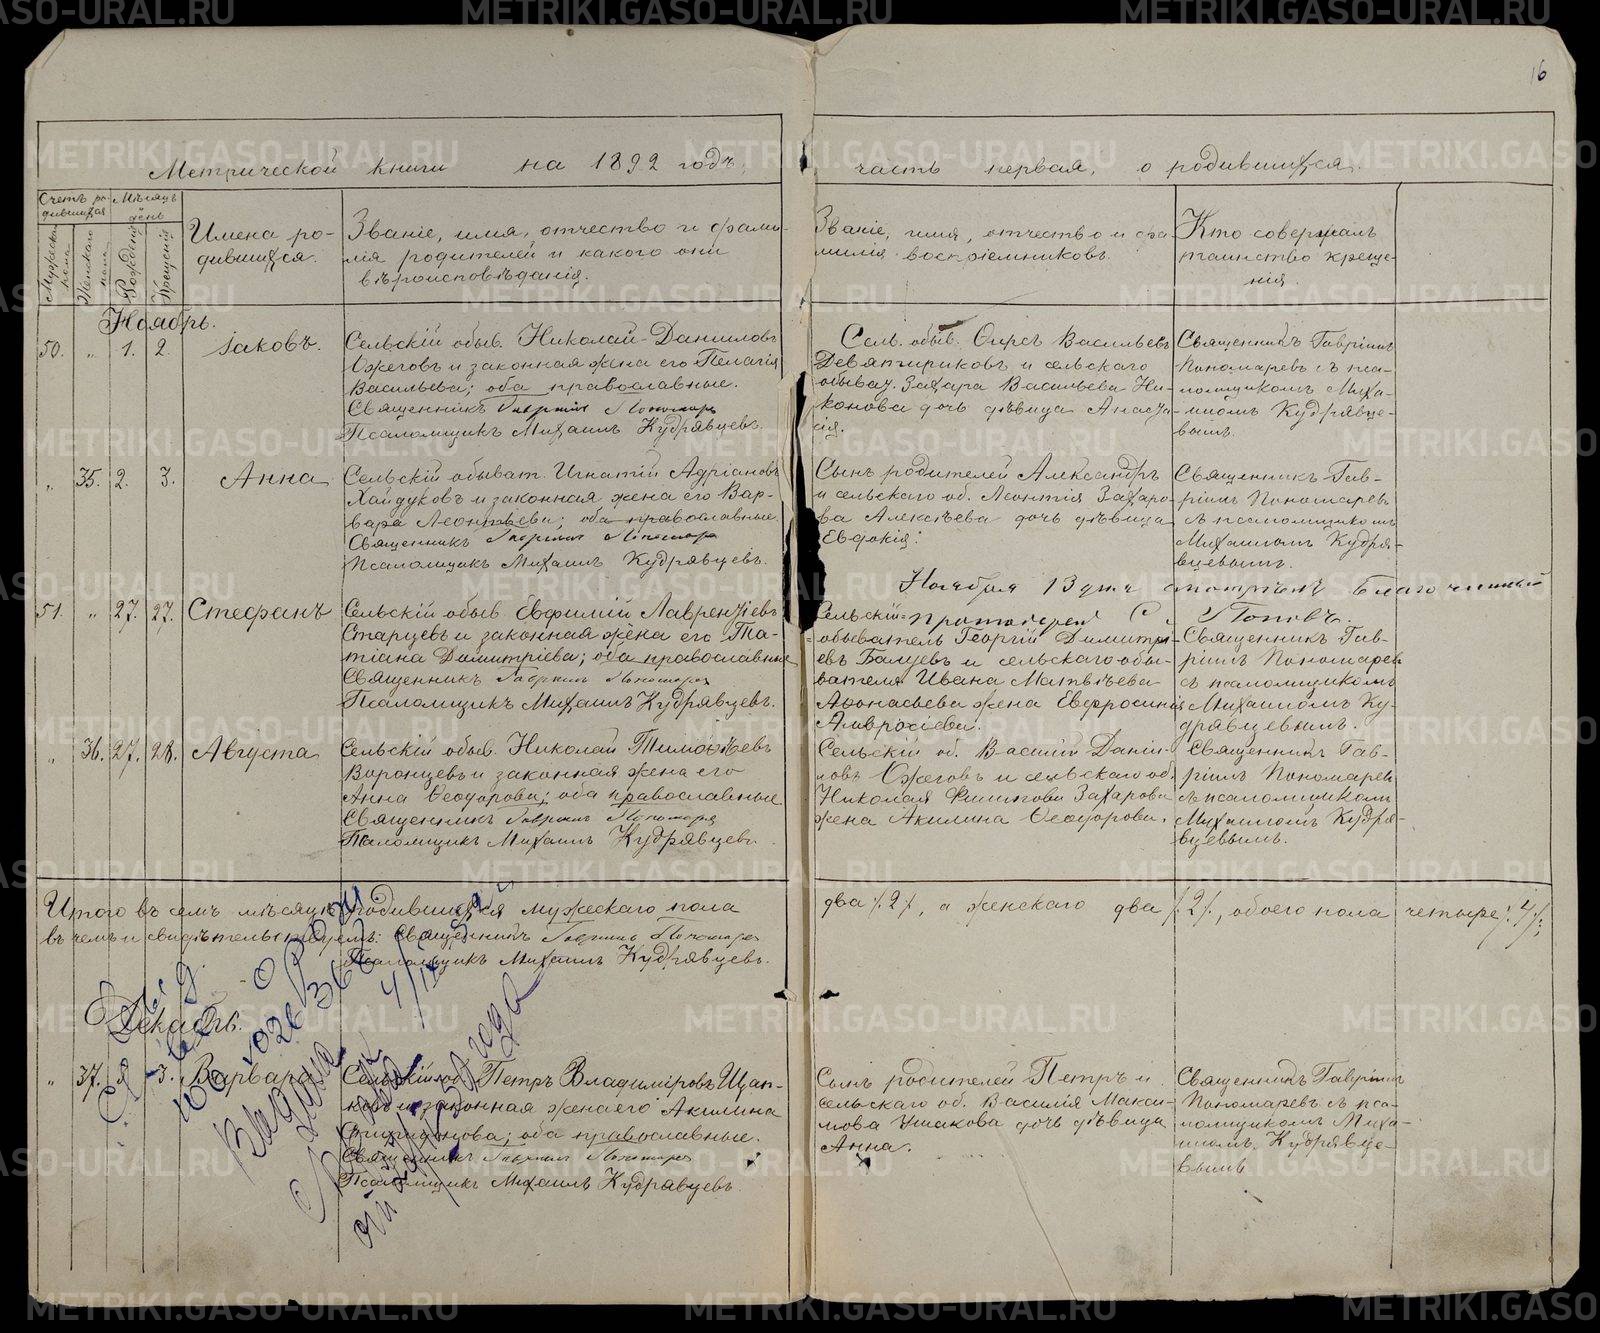 16
Метрической книги на 1892 годъ,
часть первая, о родившихся.
Счетъ ро-
дившихся
Мужеска пола
Женскаго пола
Мѣсяцъ
день
Рожденія
Крещенія
Имена ро-
дившихся.
Званіе, имя, отчество и фами-
лія родителей и какого они
вѣроисповѣданія.
Званіе, имя, отчество и фа-
милія воспріемниковъ.
Кто совершалъ
таинство креще-
нія.
Ноябрь.
50. " 1. 2. Іаковъ.
Сельскій обыв. Николай Даниловъ
Ожеговъ и законная жена его Пелагія
Васильева; оба православные.
Священникъ Гавріилъ Пономаревъ
Псаломщикъ Михаилъ Кудрявцевъ.
Сел. обыв. Фирсъ Васильевъ
Девятириковъ и сельскаго
обыват. Захара Васильева Ни-
конова дочь дѣвица Анаста-
сія.
Священникъ Гавріилъ
Пономаревъ съ пса-
ломщикомъ Миха-
иломъ Кудрявце-
вымъ.
" 35. 2. 3. Анна
Сельскій обыват. Игнатій Адріановъ
Хайдуковъ и законная жена его Вар-
вара Леонтьева; оба православные.
Священникъ Гавріилъ Пономаревъ
Псаломщикъ Михаилъ Кудрявцевъ.
Сынъ родителей Александръ
и сельскаго об. Леонтія Захаро-
ва Алексѣева дочь дѣвица
Евдокія.
Священникъ Гав-
ріилъ Пономаревъ
съ псаломщикомъ
Михаиломъ Кудряв-
цевымъ.
Ноября 13 дня смотрѣлъ Благочинный
Протоіерей Поповъ.
51. " 27. 27. Стефанъ
Сельскій обыв. Евфимій Лаврентіевъ
Старцевъ и законная жена его Та-
тіана Димитріева; оба православные
Священникъ Гавріилъ Пономаревъ
Псаломщикъ Михаилъ Кудрявцевъ.
Сельскій
обыватель Георгій Димитрі-
евъ Балуевъ и сельскаго обы-
вателя Ивана Матвѣева
Аѳонасьева жена Евфросинія
Амвросіева.
Священникъ Гав-
ріилъ Пономаревъ
съ псаломщикомъ
Михаиломъ Ку-
дрявцевымъ.
" 36. 27. 28. Августа
Сельскій обыв. Николай Тимоѳеевъ
Воронцевъ и законная жена его
Анна Ѳеодорова; оба православные
Священникъ Гавріилъ Пономаревъ
Псаломщикъ Михаилъ Кудрявцевъ.
Сельскій об. Василій Дани-
ловъ Ожеговъ и сельскаго об.
Николая Филиппова Захарова
жена Акилина Ѳеодорова.
Священникъ Гав-
ріилъ Пономаревъ
съ псаломщикомъ
Михаиломъ Кудря-
вцевымъ.
Итого въ семъ мѣсяцѣ родившихся мужескаго пола
два /.2/., а женскаго два /.2/., обоего пола четыре /.4/.;
въ чемъ и свидѣтельствуемъ: Священникъ Гавріилъ Пономаревъ
Псаломщикъ Михаилъ Кудрявцевъ.
Декабрь.
" 37. 3. Варвара
Сельскій об. Петръ Владиміровъ Щап-
ковъ и законная жена его Акилина
Спиридонова; оба православные.
Священникъ Гавріилъ Пономаревъ
Псаломщикъ Михаилъ Кудрявцевъ.
Сынъ родителей Петръ и
сельскаго об. Василія Макси-
мова Ушакова дочь дѣвица
Анна.
Священникъ Гавріилъ
Пономаревъ съ пса-
ломщикомъ Миха-
иломъ Кудрявце-
вымъ
Выдана
года
METRIKI.GASO-URAL.RU